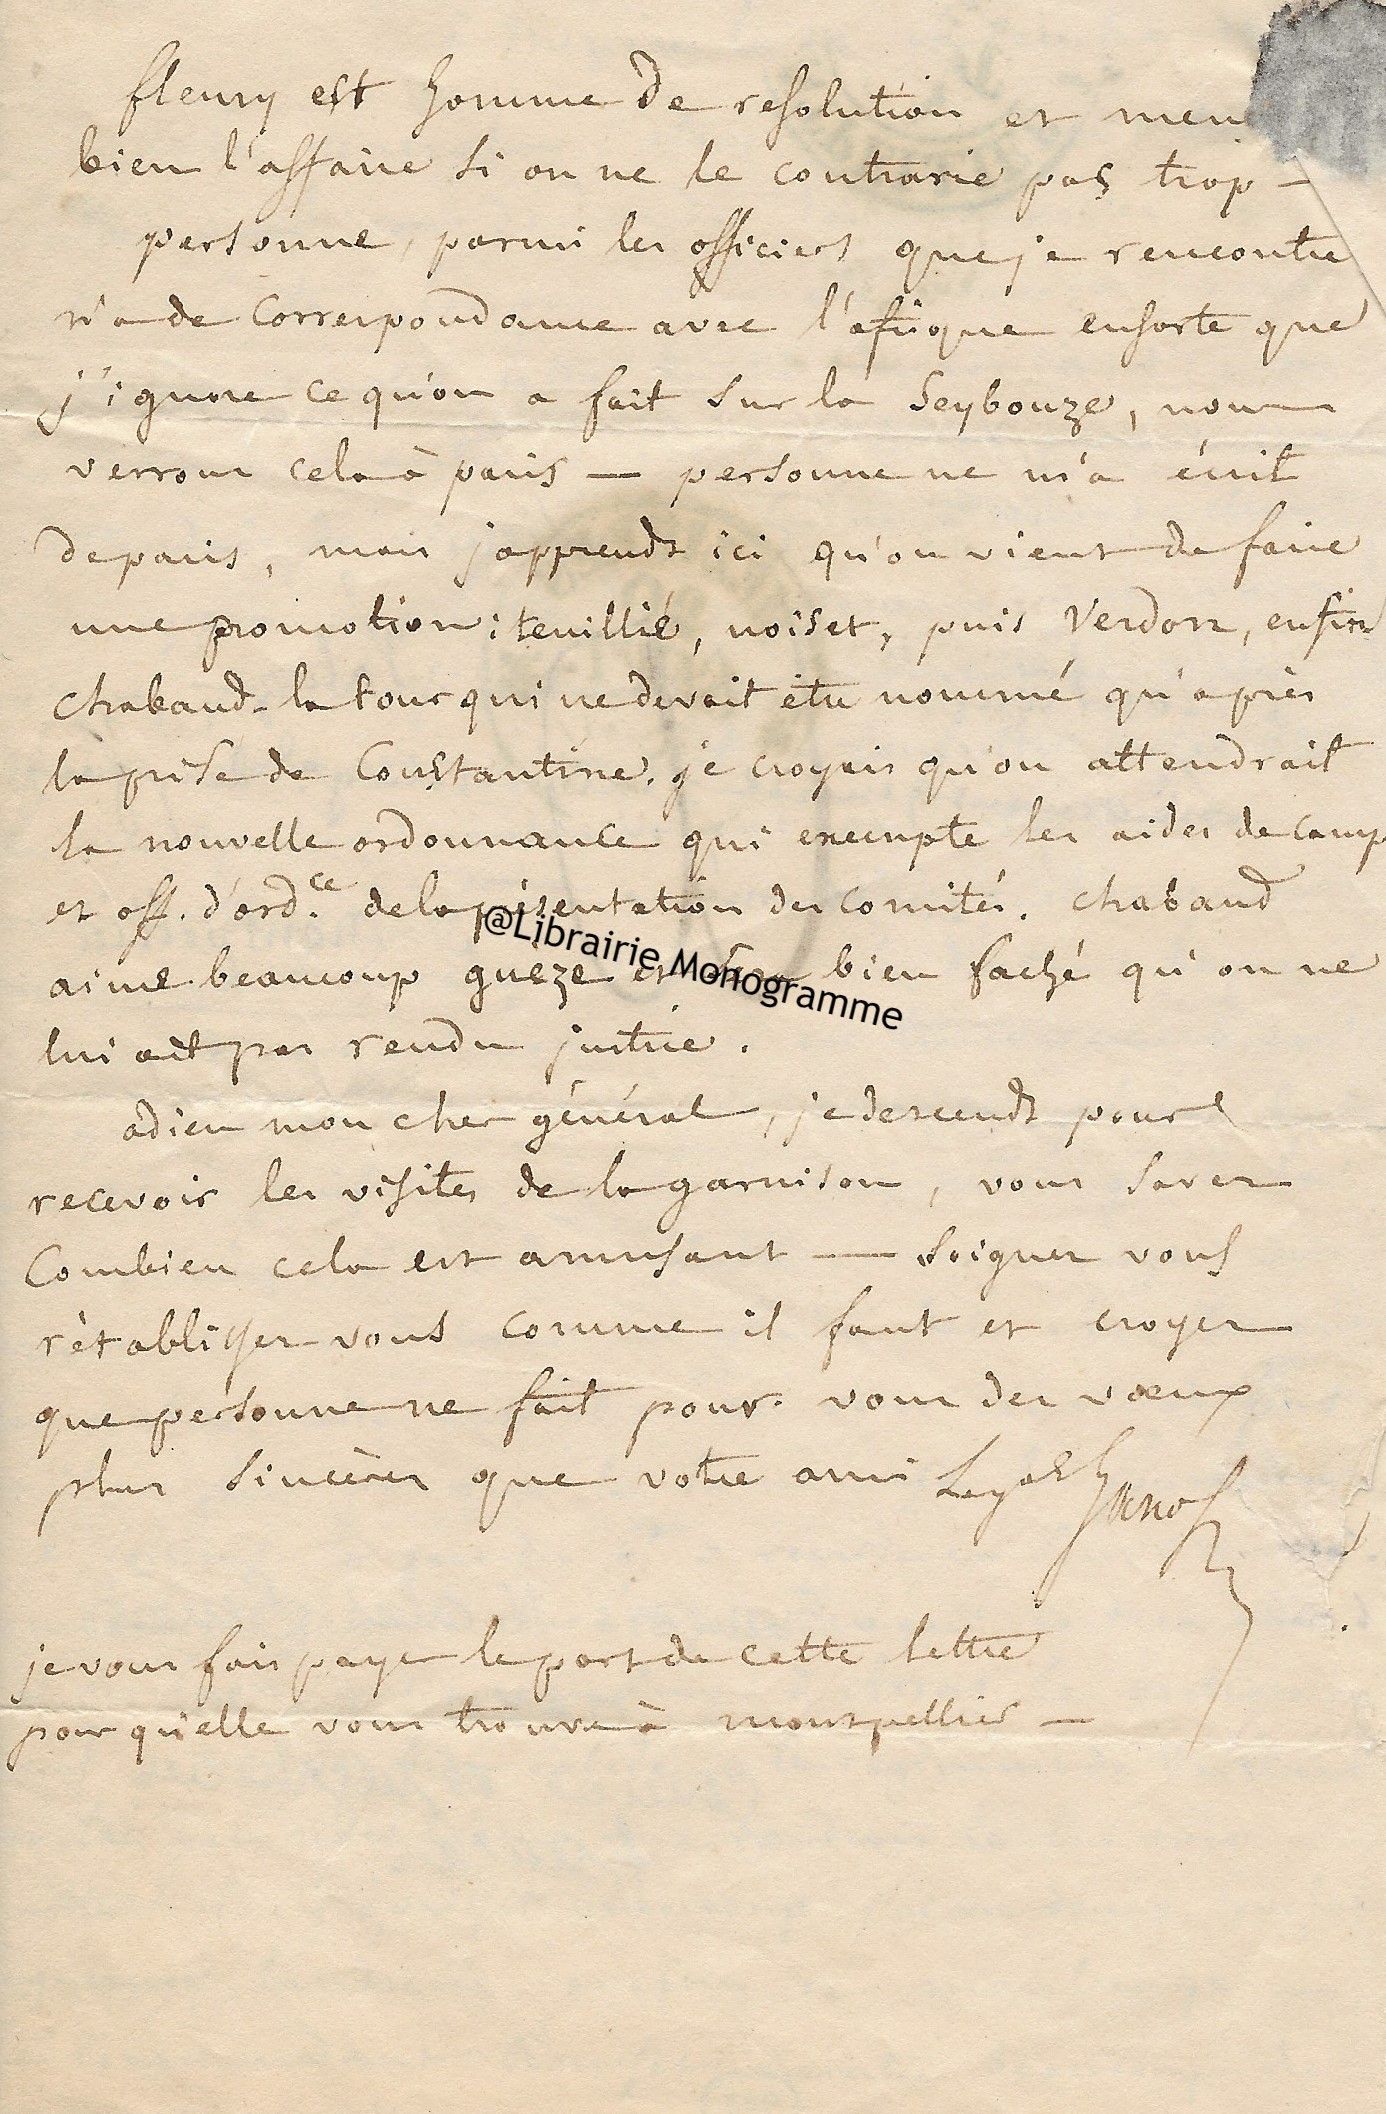 fleury est homme de resolution et men
bien l'affaire si on ne le contrarie pas trop —
personne, parmi les officiers que je rencontre
n'a de correspondance avec l'afrique ensorte que
j'ignore ce qu'on a fait sur la Seybouze, nous
verrons cela à paris — personne ne m'a écrit
de paris, mais j'apprends ici qu'on vient de faire
une promotion : teuillié, noiset, puis Verdon, enfin
chabaud-la tour qui ne devait être nommé qu'après
la prise de Constantine. je croyais qu'on attendrait
la nouvelle ordonnance qui exempte les aides de camp
et off. d'ord.ce de la présentation des comités. chabaud
aime beaucoup guèze et bien faché qu'on ne
lui ait pas rendu justice.
adieu mon cher général, je descends pour
recevoir les visites de la garnison, vous savez
Combien cela est amusant — soignez vous
rétablissez vous comme il faut et croyez
que personne ne fait pour vous des vœux
plus sincères que votre ami
je vous fais payer le port de cette lettre
pour qu'elle vous trouve à montpellier —
@Librairie Monogramme